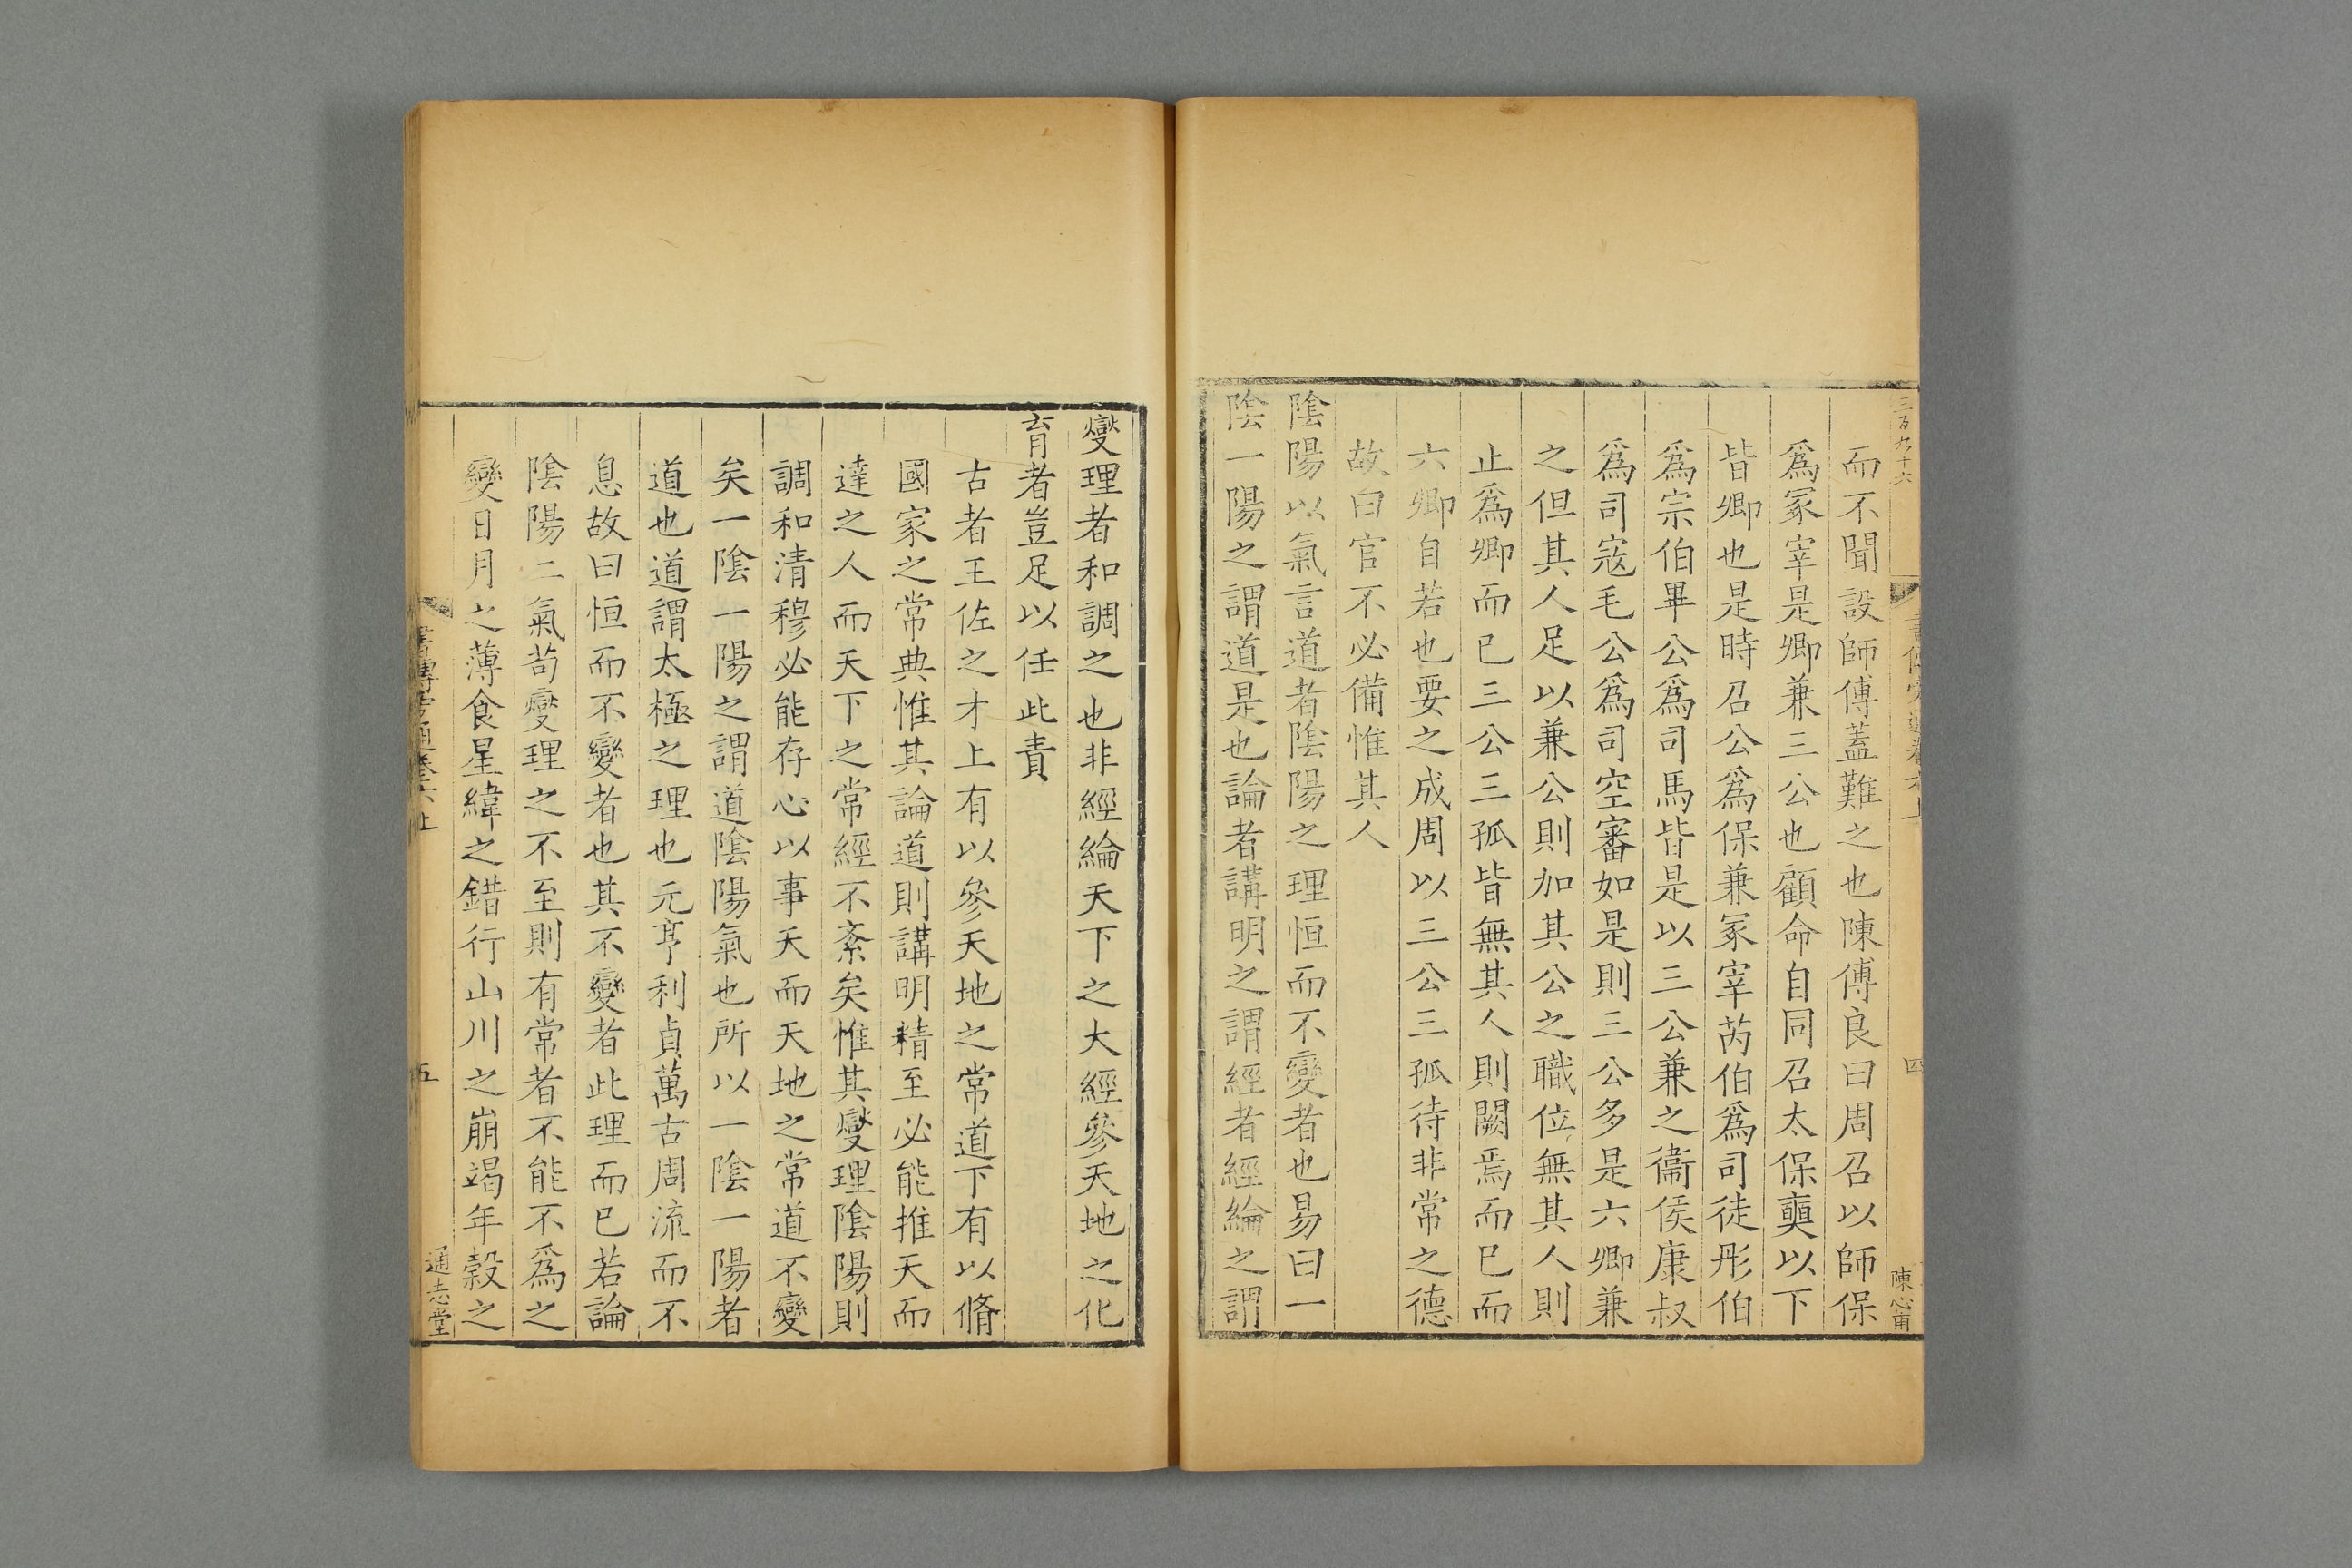 三百九十六
四
陳心甫
而不聞設師傅蓋難之也陳傅良曰周召以師保
爲冢宰是卿兼三公也顧命自同召太保奭以下
皆卿也是時召公爲保兼冢宰芮伯爲司徒彤伯
爲宗伯畢公爲司馬皆是以三公兼之衞侯康叔
爲司寇毛公爲司空審如是則三公多是六卿兼
之但其人足以兼公則加其公之職位無其人則
止爲卿而已三公三孤皆無其人則闕焉而已而
六卿自若也要之成周以三公三孤待非常之德
故曰官不必備惟其人
陰陽以氣言道者陰陽之理恒而不變者也易曰一
陰一陽之謂道是也論者講明之謂經者經綸之謂
燮理者和調之也非經綸天下之大經參天地之化
育者豈足以任此責
古者王佐之才上有以參天地之常道下有以脩
國家之常典惟其論道則講明精至必能推天而
達之人而天下之常經不紊矣惟其燮理陰陽則
調和清穆必能存心以事天而天地之常道不變
矣一陰一陽之謂道陰陽氣也所以一陰一陽者
道也道謂太極之理也元亨利貞萬古周流而不
息故曰恒而不變者也其不變者此理而已若論
陰陽二氣苟燮理之不至則有常者不能不爲之
變日月之薄食星緯之錯行山川之崩竭年穀之
書傳旁通卷六上
五
通志堂